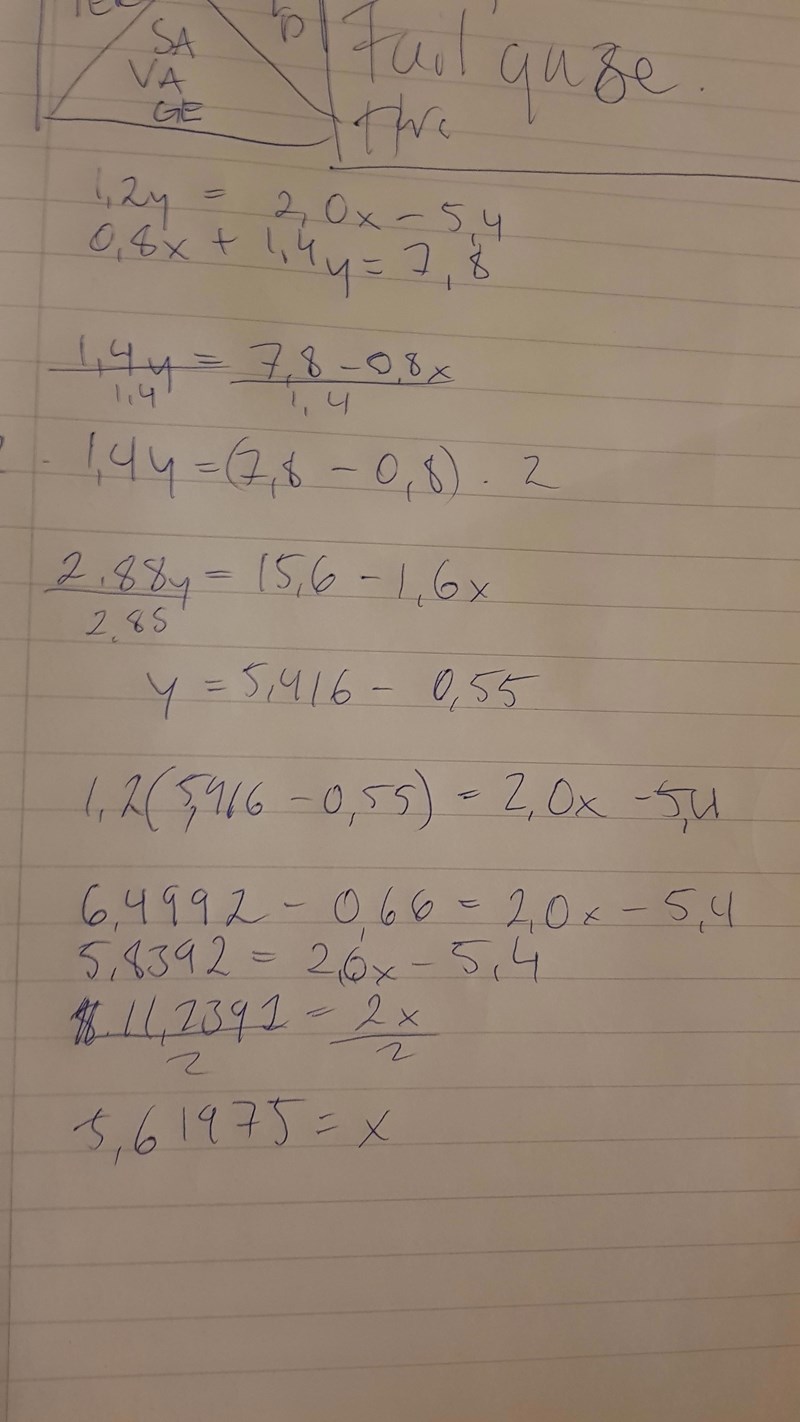 SA
VA
GE
1,2y = 2,0x - 5,4
0,8x + 1,4y = 7,8
1,4y = 7,8 - 0,8x
1,4 1,4
1,4y = (7,8 - 0,8) · 2
2,88y = 15,6 - 1,6x
2,85
y = 5,416 - 0,55
1,2(5,416 - 0,55) = 2,0x - 5,4
6,4992 - 0,66 = 2,0x - 5,4
5,8392 = 2,0x - 5,4
11,2392 = 2x
2 2
5,61975 = x